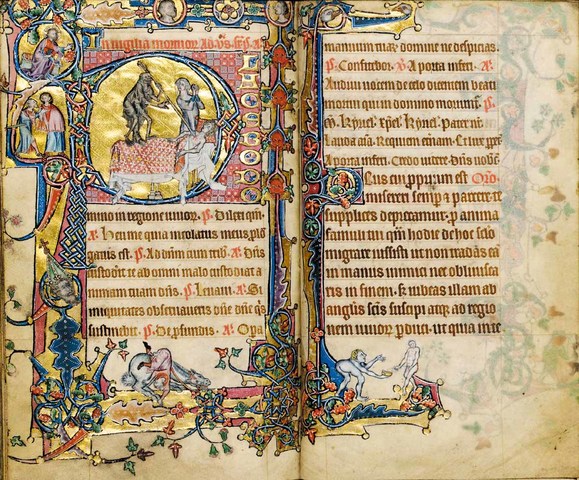 In uigilia mortuor Ad
mino in regione uiuor. P. Dilexi qm.
A. Heu me quia incolatus meus plo
gatus est. P. Ad dnm cum A. Dns
custodit te ab omni malo custodiat a
nimam tuam dns. P. Leuaui. A. Si
iniquitates obseruaueris dne dne qs
sustinebit. P. De pfundis. A. Opa
manuum tuar domine ne despicias.
P. Confitebor. V. A porta inferi. A.
Audiui uocem de celo dicentem beati
mortui qui in domino P.
Kyriel. xpel. Kyriel. Pater nr
Lauda aia. Requiem eternam. Et
A porta inferi. Credo uidere. Dns uobis
Deus cui pprium est Oro.
misereri semp & parcere te
supplices deprecamur. p anima
famuli tui qm hodie de hoc sclo
migrare iussisti ut non tradas ea
in manus inimici nec obliuisca
ris in finem. & iubeas illam ab
anglis scis suscipi atq; ad regio
nem uiuor pduci. ut quia in te